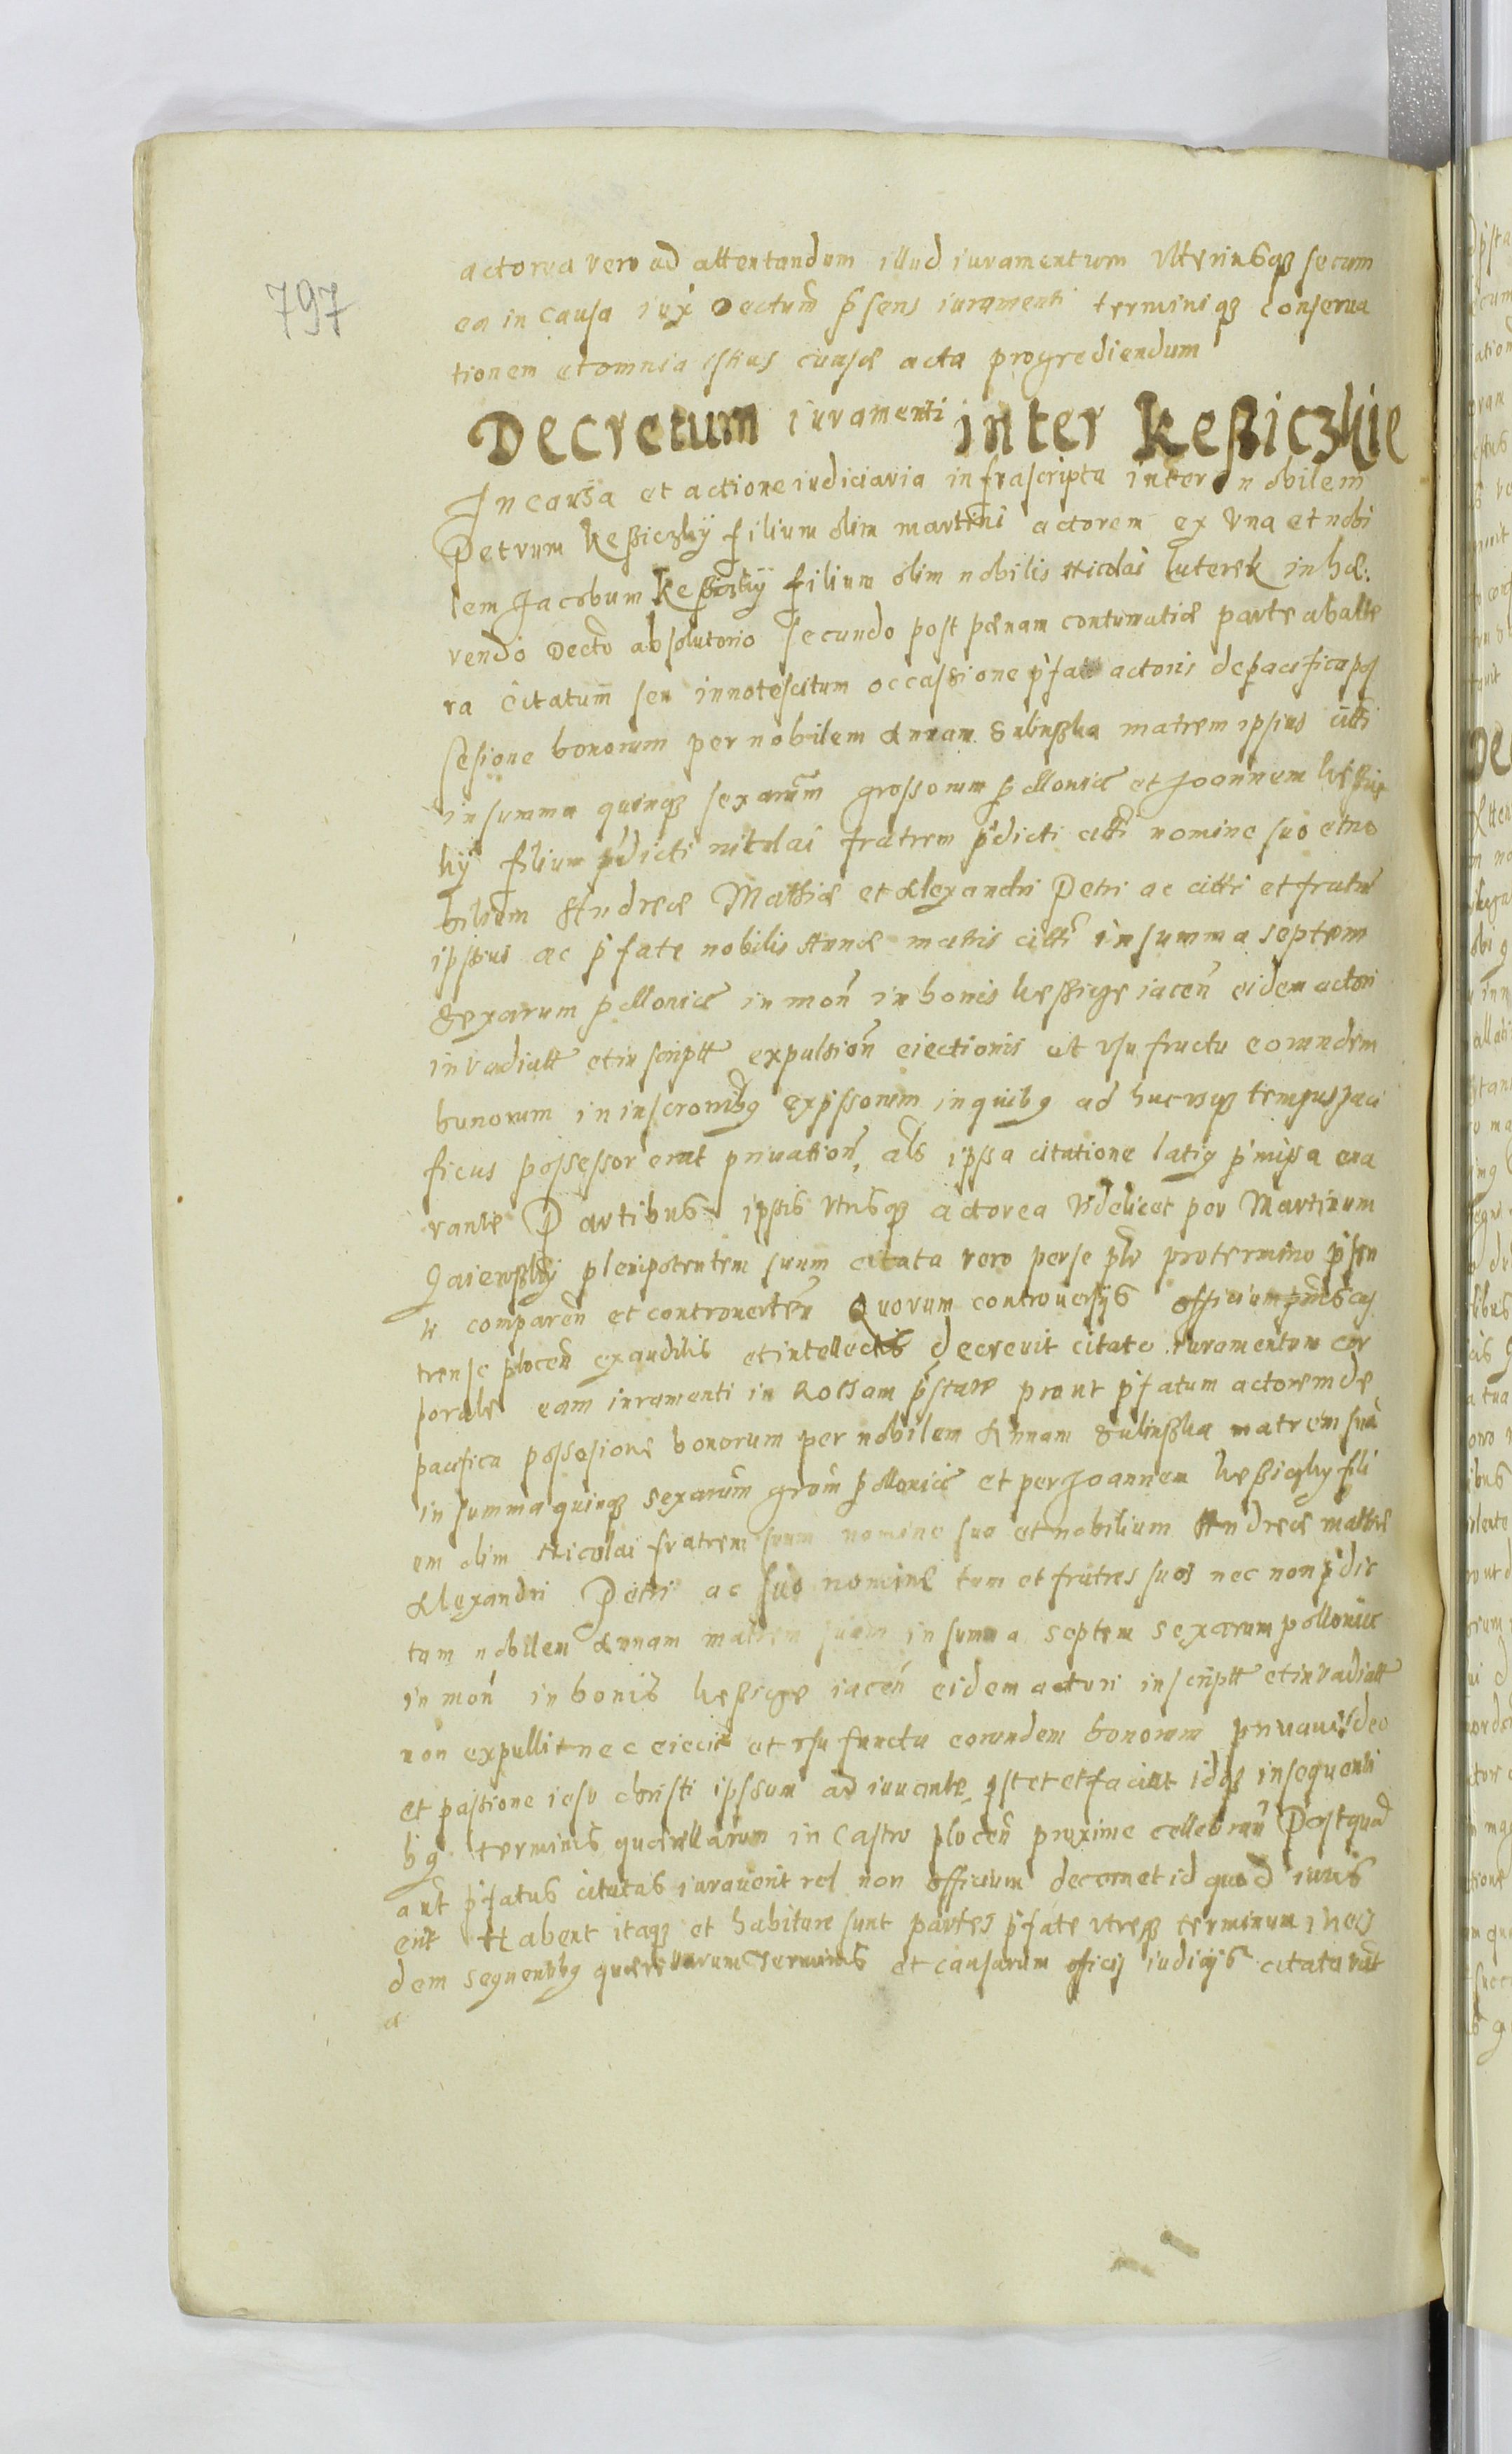 797
actorea vero ad attentandum illud iuramentum Ulteriusqȝ secum
ea in causa iux Dectum p̃sens iuramenti terminiqȝ conserua
tionem et omnia istius causæ acta progrediendum
Decretum iuramenti inter Keßiczkie
In causa et actione iudiciaria infrascripta inter nobilem
Petrum Keßiczkÿ filium olim martini actorem ex Una et nobi
lem Jacobum Keßiczkÿ filium olim nobilis Nicolai luterek in hæ:
rendo Decto absolutorio secundo post pænam contumatiæ parte ab alte
ra Citatum seu innotescitum occassione p̃fati actoris de pacifica pos
sesione bonorum per nobilem Annam Sulinßka matrem ipsius citti
in summa quinqȝ sexarum grossorum pollonic et Joannem keßicz
kÿ filium p̃dicti nicolai fratrem p̃dicti citti nomine suo et no
bilium Andreæ Mathiæ et Alexandri Petri ac citti et fratru
ipsius ac p̃fate nobilis Annæ matris citti in summa septem
sexarum pollonic in mon in bonis keßicze iacen eidem actori
invadiatt et inscriptt expulsion eiectionis et usu fructu eorundem
bonorum in inscronibȝ expssorum in quibȝ ad hucusqȝ tempus paci
ficus possessor erat priuation, als ipssa citatione latiȝ p̃missa ena
rante Partibus ipsis utrisqȝ actorea Videlicet per Martinum
Gaiewßky plenipotentem suum citata vero per se pro termino p̃sen
ti comparen et controuerten Quorum controuersÿs officium
trense plocen exauditis et intellectis decreuit citato iuramentum cor
porale eam iuramenti in Rottam p̃stare prout p̃fatum actorem de
pacifica possesione bonorum per nobilem Annam Sulinßka matrem sua
in summa quinqȝ sexarum grom pollonic et per Joannem keßiczky fili
um olim Nicolai fratrem suum nomine suo et nobilium Andreæ mathiæ
Alexandri Petri ac suo nomine tum et fratres suos nec non p̃dic
tam nobilem Annam matrem suam in summa septem sexarum pollonic
in mon in bonis keßicze iacen eidem actori inscriptt et invadiatt
non expullit nec eiecit et usu fructu eorundem bonorum priuauit deo
et passione iesu christi ipssum adiuuante, et faciet idqȝ in sequenti
bȝ terminis quærellarum in Castro plocen proxime cellebran Postquã
aut p̃fatus citatus iurauerit vel non officium decernet id quod iuris
erit Habent itaqȝ et habiture sunt partes p̃fate utreqȝ terminum in eis
dem sequentibȝ quærellarum Terminis et causarum officÿ iudicÿs citata
a